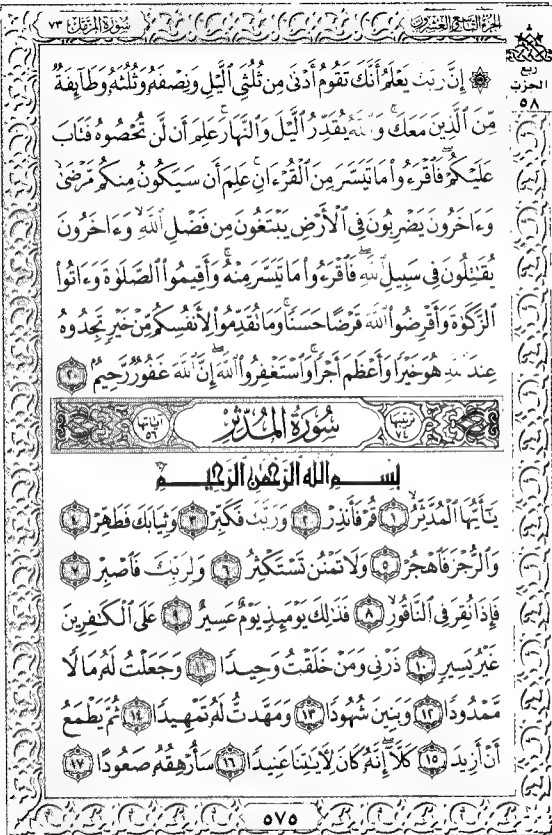 الجزء التاسع والعشرون
سورة المزمل ٧٣
ربع
الحزب
٥٨
۞ إِنَّ رَبَّكَ يَعْلَمُ أَنَّكَ تَقُومُ أَدْنَىٰ مِن ثُلُثَىِ ٱلَّيْلِ وَنِصْفَهُۥ وَثُلُثَهُۥ وَطَآئِفَةٌ
مِّنَ ٱلَّذِينَ مَعَكَ ۚ وَٱللَّهُ يُقَدِّرُ ٱلَّيْلَ وَٱلنَّهَارَ ۚ عَلِمَ أَن لَّن تُحْصُوهُ فَتَابَ
عَلَيْكُمْ ۖ فَٱقْرَءُوا۟ مَا تَيَسَّرَ مِنَ ٱلْقُرْءَانِ ۚ عَلِمَ أَن سَيَكُونُ مِنكُم مَّرْضَىٰ ۙ
وَءَاخَرُونَ يَضْرِبُونَ فِى ٱلْأَرْضِ يَبْتَغُونَ مِن فَضْلِ ٱللَّهِ ۙ وَءَاخَرُونَ
يُقَـٰتِلُونَ فِى سَبِيلِ ٱللَّهِ ۖ فَٱقْرَءُوا۟ مَا تَيَسَّرَ مِنْهُ ۚ وَأَقِيمُوا۟ ٱلصَّلَوٰةَ وَءَاتُوا۟
ٱلزَّكَوٰةَ وَأَقْرِضُوا۟ ٱللَّهَ قَرْضًا حَسَنًا ۚ وَمَا تُقَدِّمُوا۟ لِأَنفُسِكُم مِّنْ خَيْرٍ تَجِدُوهُ
عِندَ ٱللَّهِ هُوَ خَيْرًا وَأَعْظَمَ أَجْرًا ۚ وَٱسْتَغْفِرُوا۟ ٱللَّهَ ۖ إِنَّ ٱللَّهَ غَفُورٌ رَّحِيمٌۢ ٢٠
ترتيبها ٧٤ سورة المدثر آياتها ٥٦
بسم الله الرحمن الرحيم
يَـٰٓأَيُّهَا ٱلْمُدَّثِّرُ ١ قُمْ فَأَنذِرْ ٢ وَرَبَّكَ فَكَبِّرْ ٣ وَثِيَابَكَ فَطَهِّرْ ٤
وَٱلرُّجْزَ فَٱهْجُرْ ٥ وَلَا تَمْنُن تَسْتَكْثِرُ ٦ وَلِرَبِّكَ فَٱصْبِرْ ٧
فَإِذَا نُقِرَ فِى ٱلنَّاقُورِ ٨ فَذَٰلِكَ يَوْمَئِذٍ يَوْمٌ عَسِيرٌ ٩ عَلَى ٱلْكَـٰفِرِينَ
غَيْرُ يَسِيرٍ ١٠ ذَرْنِى وَمَنْ خَلَقْتُ وَحِيدًا ١١ وَجَعَلْتُ لَهُۥ مَالًا
مَّمْدُودًا ١٢ وَبَنِينَ شُهُودًا ١٣ وَمَهَّدتُّ لَهُۥ تَمْهِيدًا ١٤ ثُمَّ يَطْمَعُ
أَنْ أَزِيدَ ١٥ كَلَّآ ۖ إِنَّهُۥ كَانَ لِـَٔايَـٰتِنَا عَنِيدًا ١٦ سَأُرْهِقُهُۥ صَعُودًا ١٧
٥٧٥